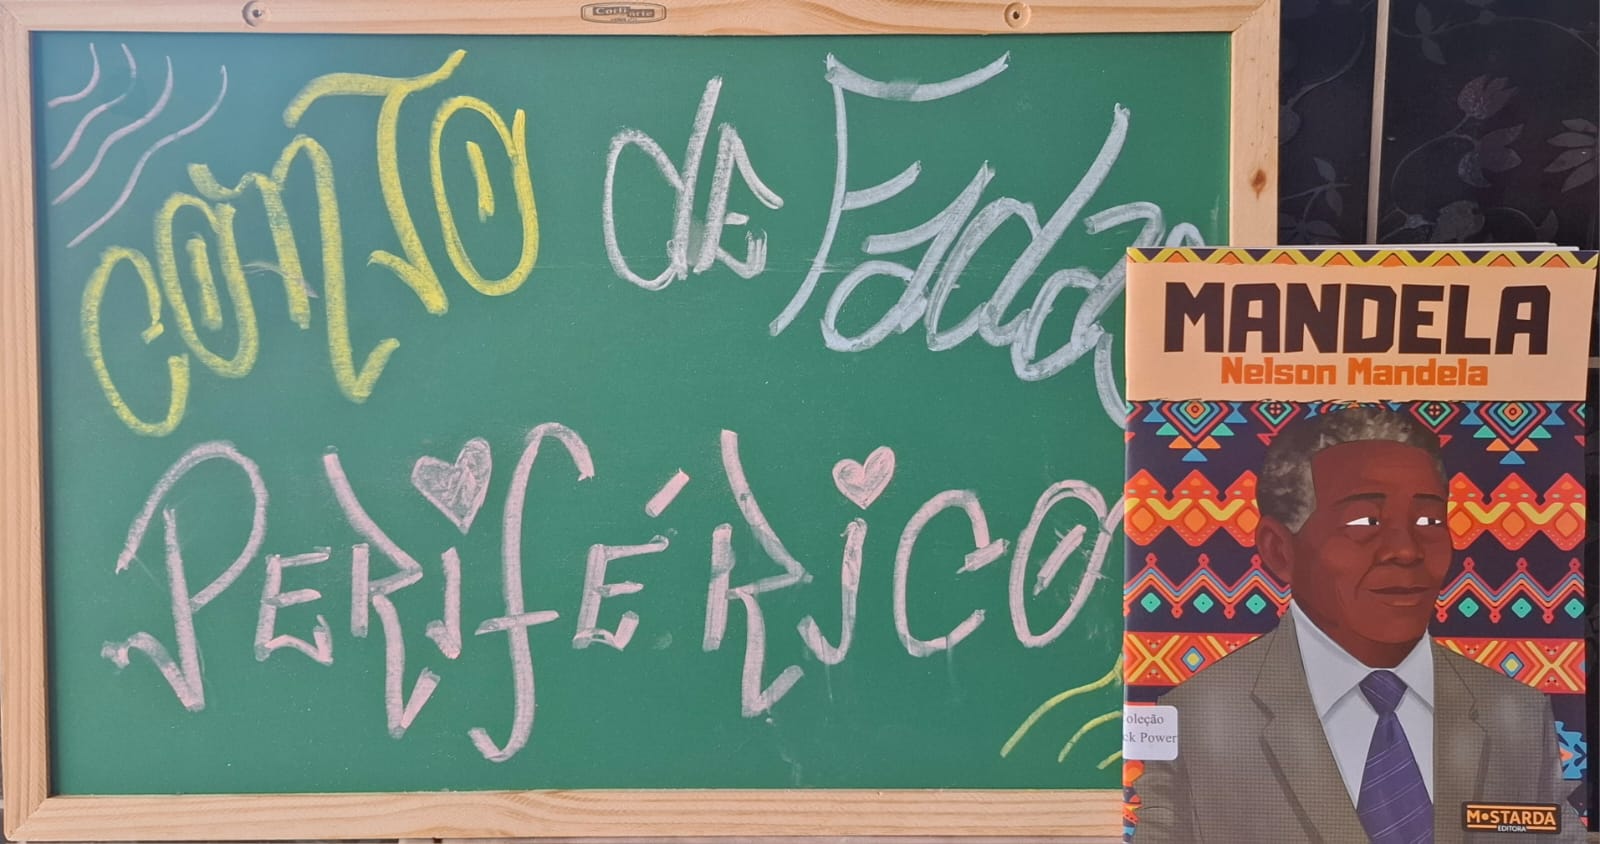 Cortiarte
CONTO de Fadas
PERIFÉRICO
MANDELA
Nelson Mandela
oleção
ck Power
M•STARDA
EDITORA